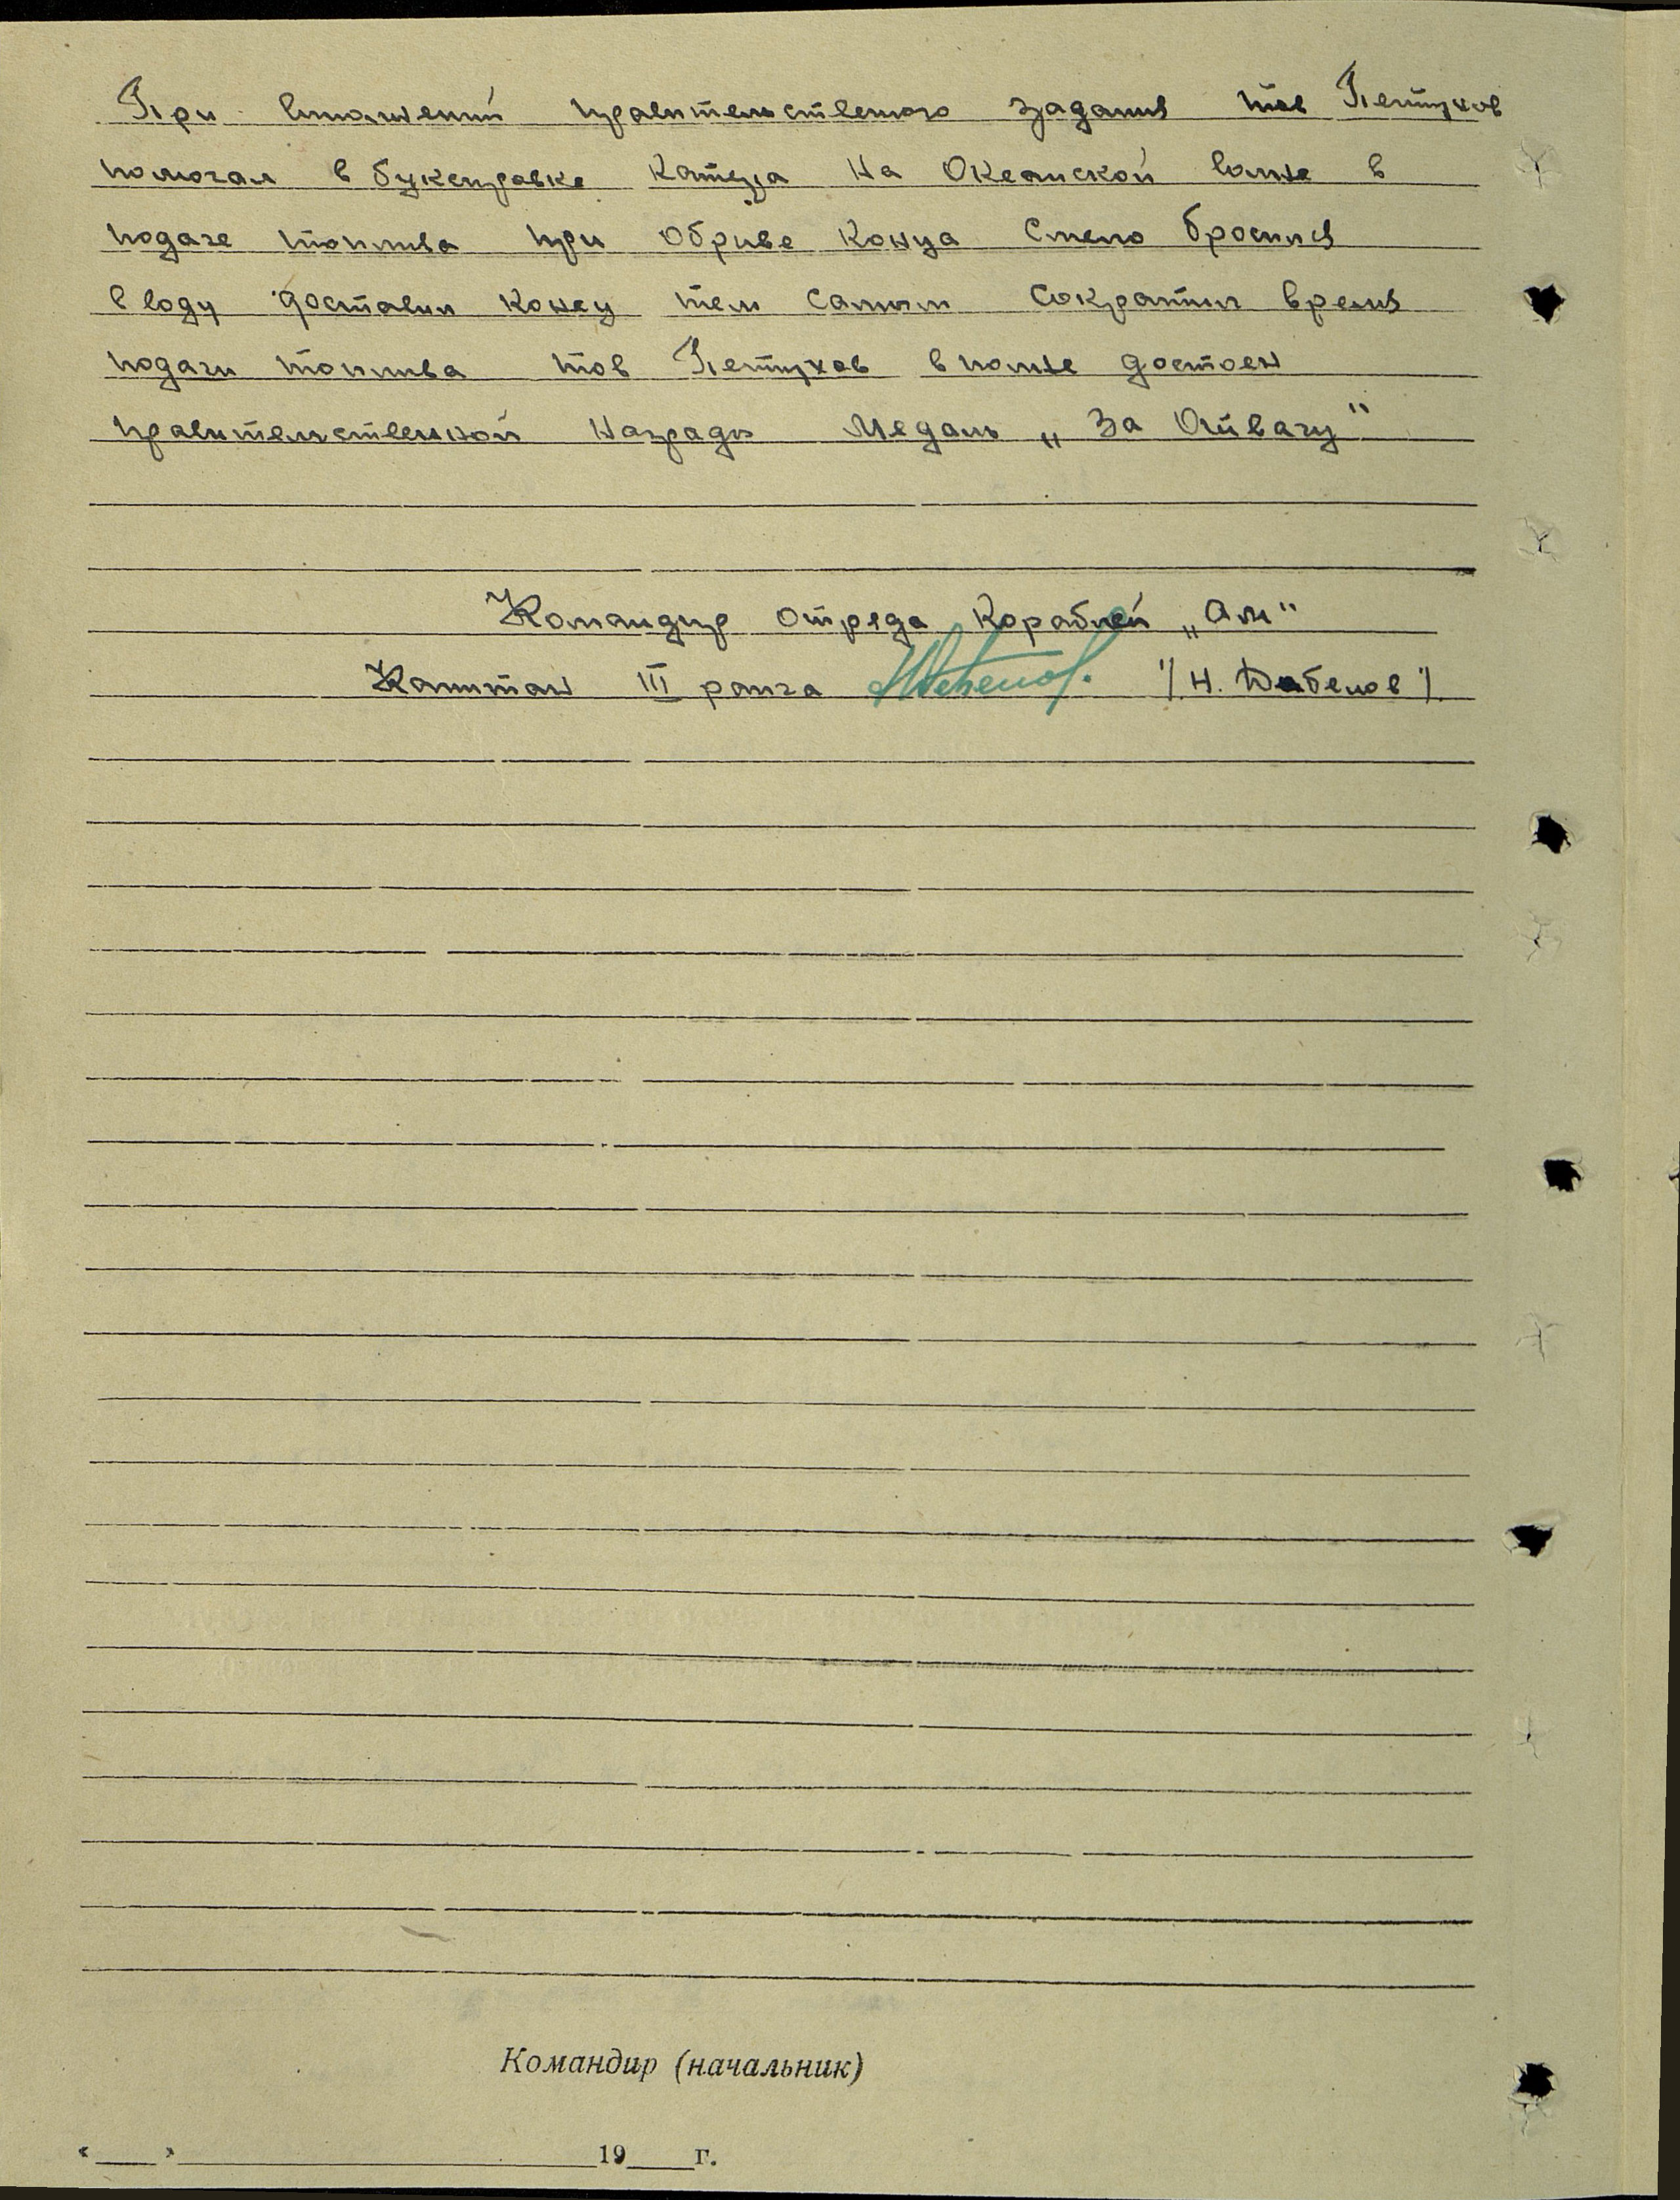 При выполнении правительственого задания тов Петухов
помогал в букспровке катера на Океанской волне в
подаче топлива при обриве конца смело бросился
в воду доставил конец тем самым сократил время
подачи топлива тов Петухов вполне достоен
правительственной награды Медаль „За Отвагу“
Командир отряда кораблей „АМ“
Капитан III ранга /Н. Дебелов/
Командир (начальник)
«___»___19___г.